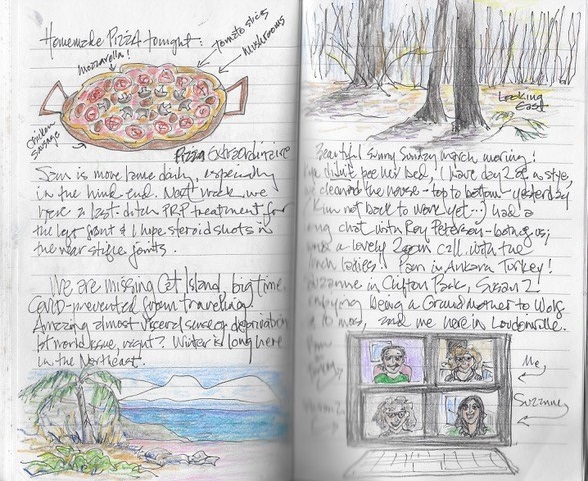 Homemade Pizza tonight:
Mozzarella!
tomato slices
Mushrooms
Chicken
Sausage
Pizza Extraordinaire
Sam is more lame daily, especially
in the hind end. Next week, we
have a last-ditch PRP treatment for
the left joint & I hope steroid shots in
the near stifle joints.
We are missing Cat Island, big time,
Covid-prevented from traveling
Amazing almost visceral sense of deprivation
1st world issue, right? Winter is long here
in the Northeast.
Looking
East
Beautiful sunny Sunday March morning!
didn't pee her bed, I have day 2 of a stye,
we cleaned the house - top to bottom - yesterday
(Kim not back to work yet...) had a
long chat with Roy Peterson
a lovely Zoom call with the
ladies! Pam in Ankara Turkey!
Suzanne in Clifton Park, Susan Z!
enjoying being a Grandmother to Wolf
10 mos, and me here in Loudonville.
Me
Suzanne